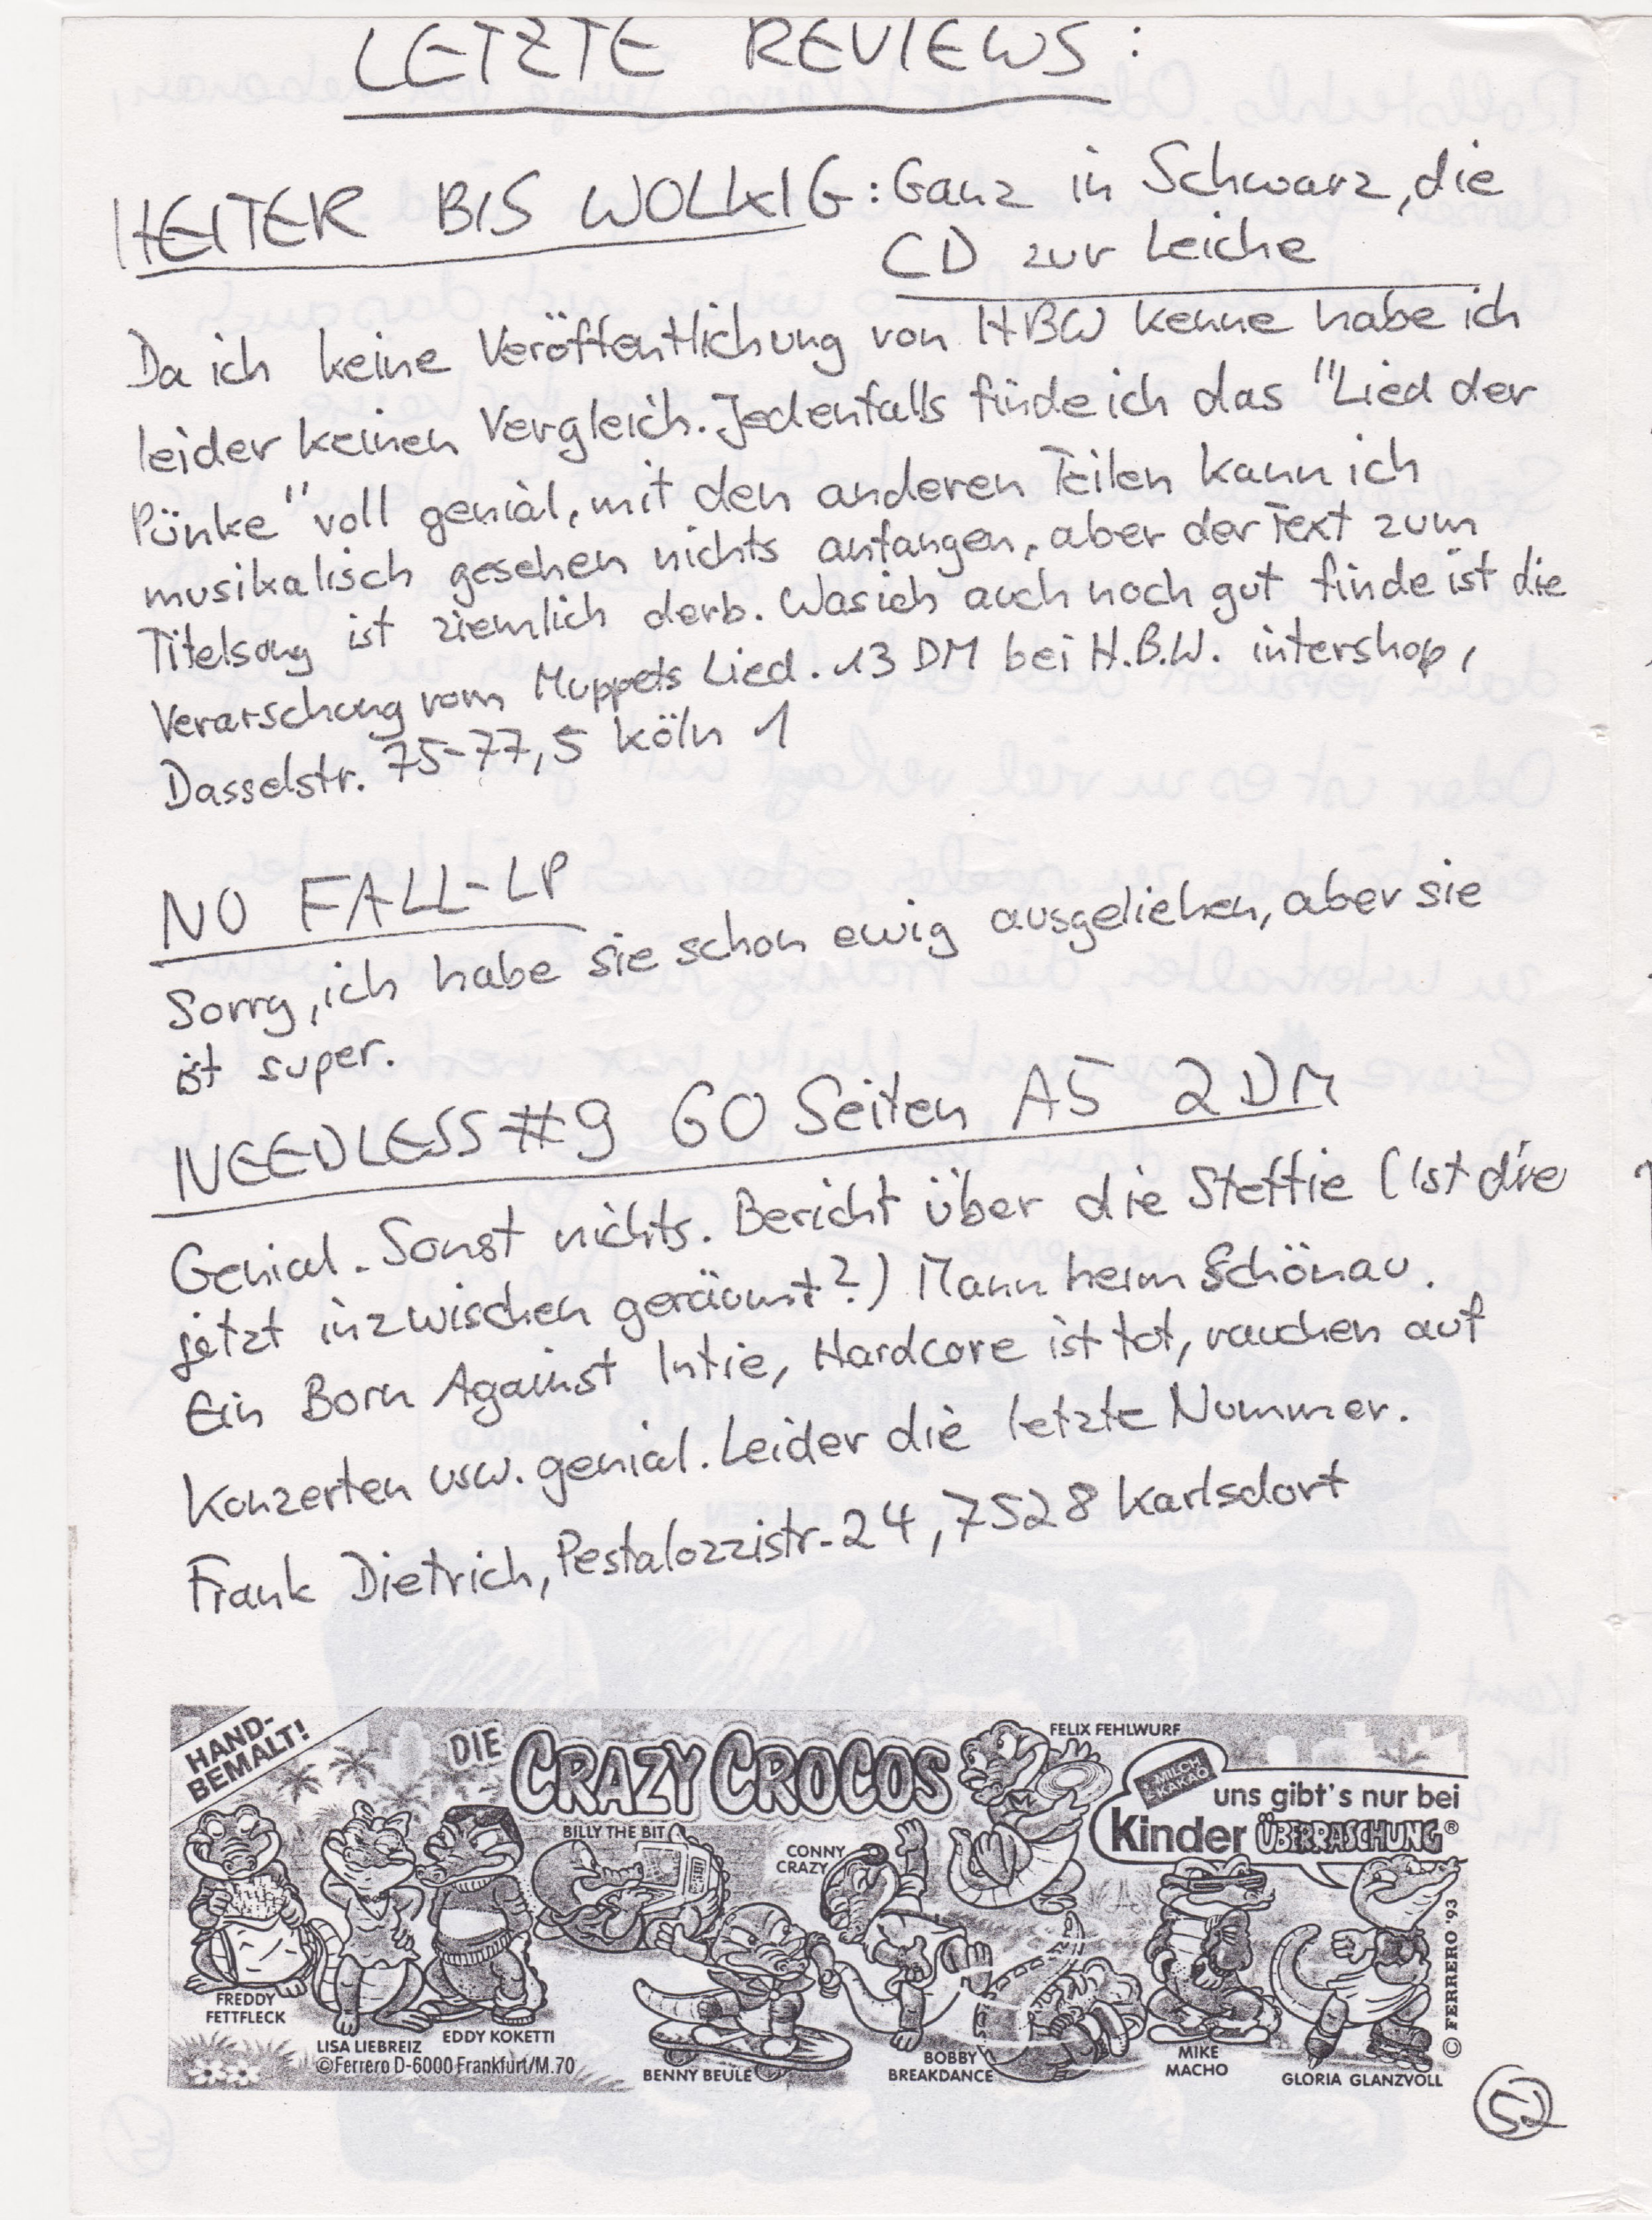 LETZTE REVIEWS:
HEITER BIS WOLKIG: Ganz in Schwarz, die
CD zur Leiche
Da ich keine Veröffentlichung von HBW kenne habe ich
leider keinen Vergleich. Jedenfalls finde ich das "Lied der
Pünke" voll genial, mit den anderen Teilen kann ich
musikalisch gesehen nichts anfangen, aber der Text zum
Titelsong ist ziemlich derb. Was ich auch noch gut finde ist die
Verarschung vom Muppets Lied. 13 DM bei H.B.W. intershop,
Dasselstr. 75-77, 5 Köln 1
NO FALL-LP
Sorry, ich habe sie schon ewig ausgeliehen, aber sie
ist super.
NEEDLESS #9 60 Seiten A5 2 DM
Genial. Sonst nichts. Bericht über die Steffie (Ist die
jetzt inzwischen geräumt?) Mannheim Schönau.
Ein Born Against Intie, Hardcore ist tot, rauchen auf
Konzerten usw. genial. Leider die letzte Nummer.
Frank Dietrich, Pestalozzistr. 24, 7528 Karlsdorf
HAND-
BEMALT!
DIE CRAZY CROCOS
FELIX FEHLWURF
MILCH
KAKAO
uns gibt's nur bei
Kinder ÜBERRASCHUNG®
BILLY THE BIT
CONNY
CRAZY
FREDDY
FETTFLECK
LISA LIEBREIZ
EDDY KOKETTI
©Ferrero D-6000 Frankfurt/M. 70
BENNY BEULE
BOBBY
BREAKDANCE
MIKE
MACHO
GLORIA GLANZVOLL
© FERRERO '93
52